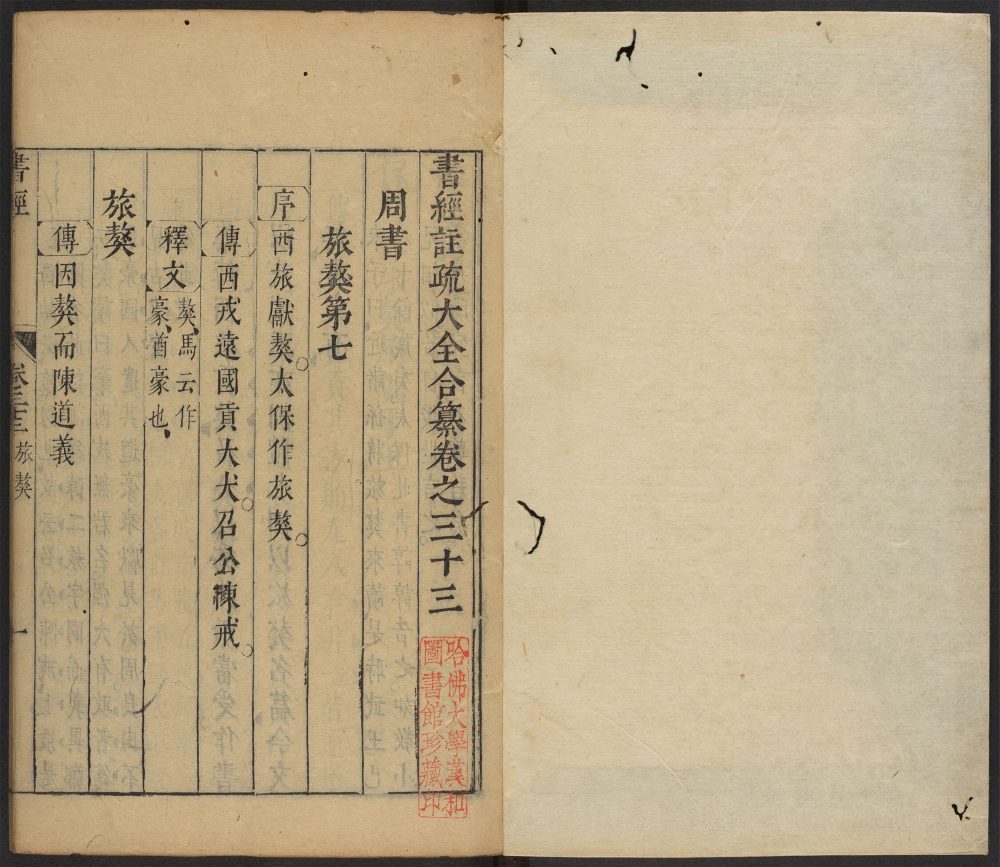 書經註疏大全合纂卷之三十三
哈佛大學漢和
圖書館珍藏印
周書
旅獒第七
序西旅獻獒。太保作旅獒。
傳西戎遠國貢大犬。召公陳戒。
釋文獒、馬云作
豪、酋豪也、
旅獒
傳因獒而陳道義
書經
卷三十三
旅獒
一